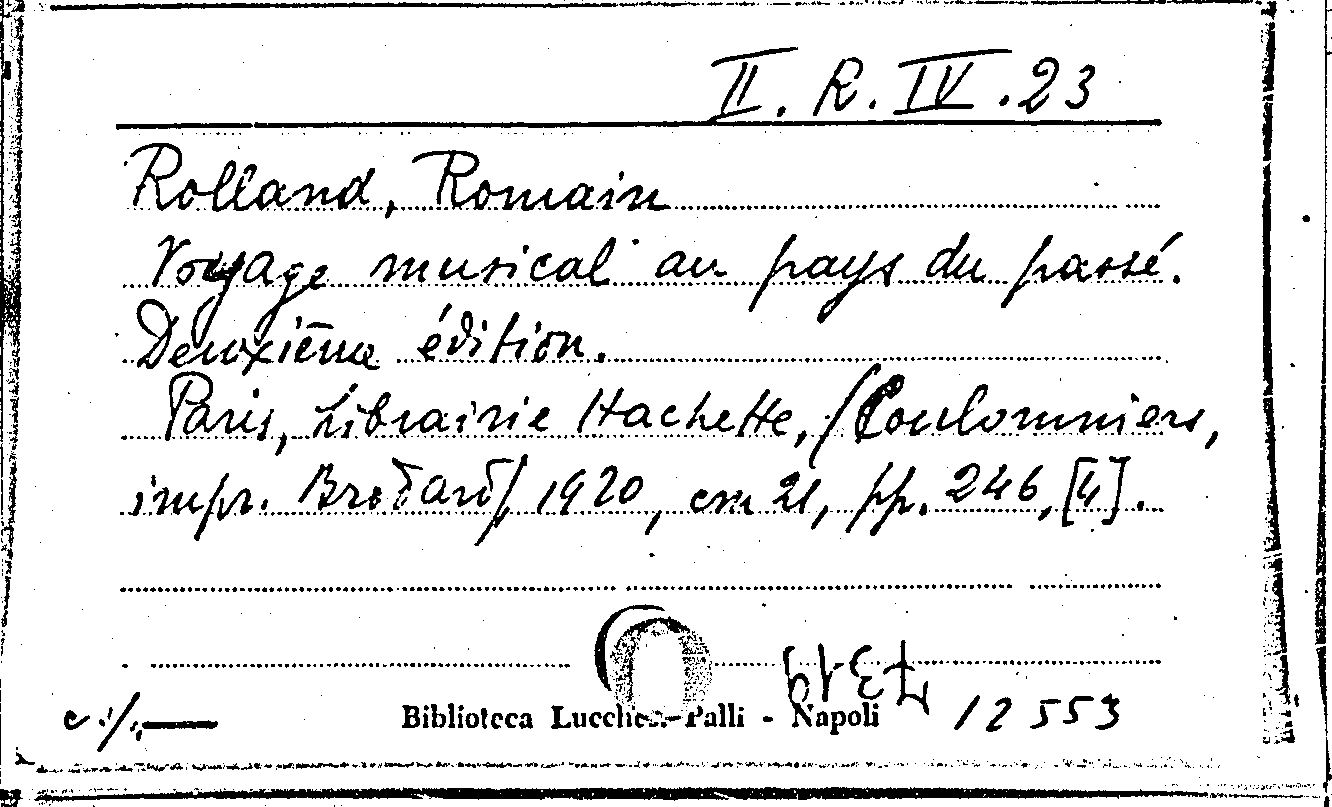 II. R. IV. 23
Rolland, Romain
Voyage musical au pays du passé.
Deuxième édition.
Paris, Librairie Hachette, /Coulommiers,
impr. Brodard/, 1920, cm 21, pp. 246, [4].
7319
Biblioteca Lucchesi-Palli - Napoli
12553